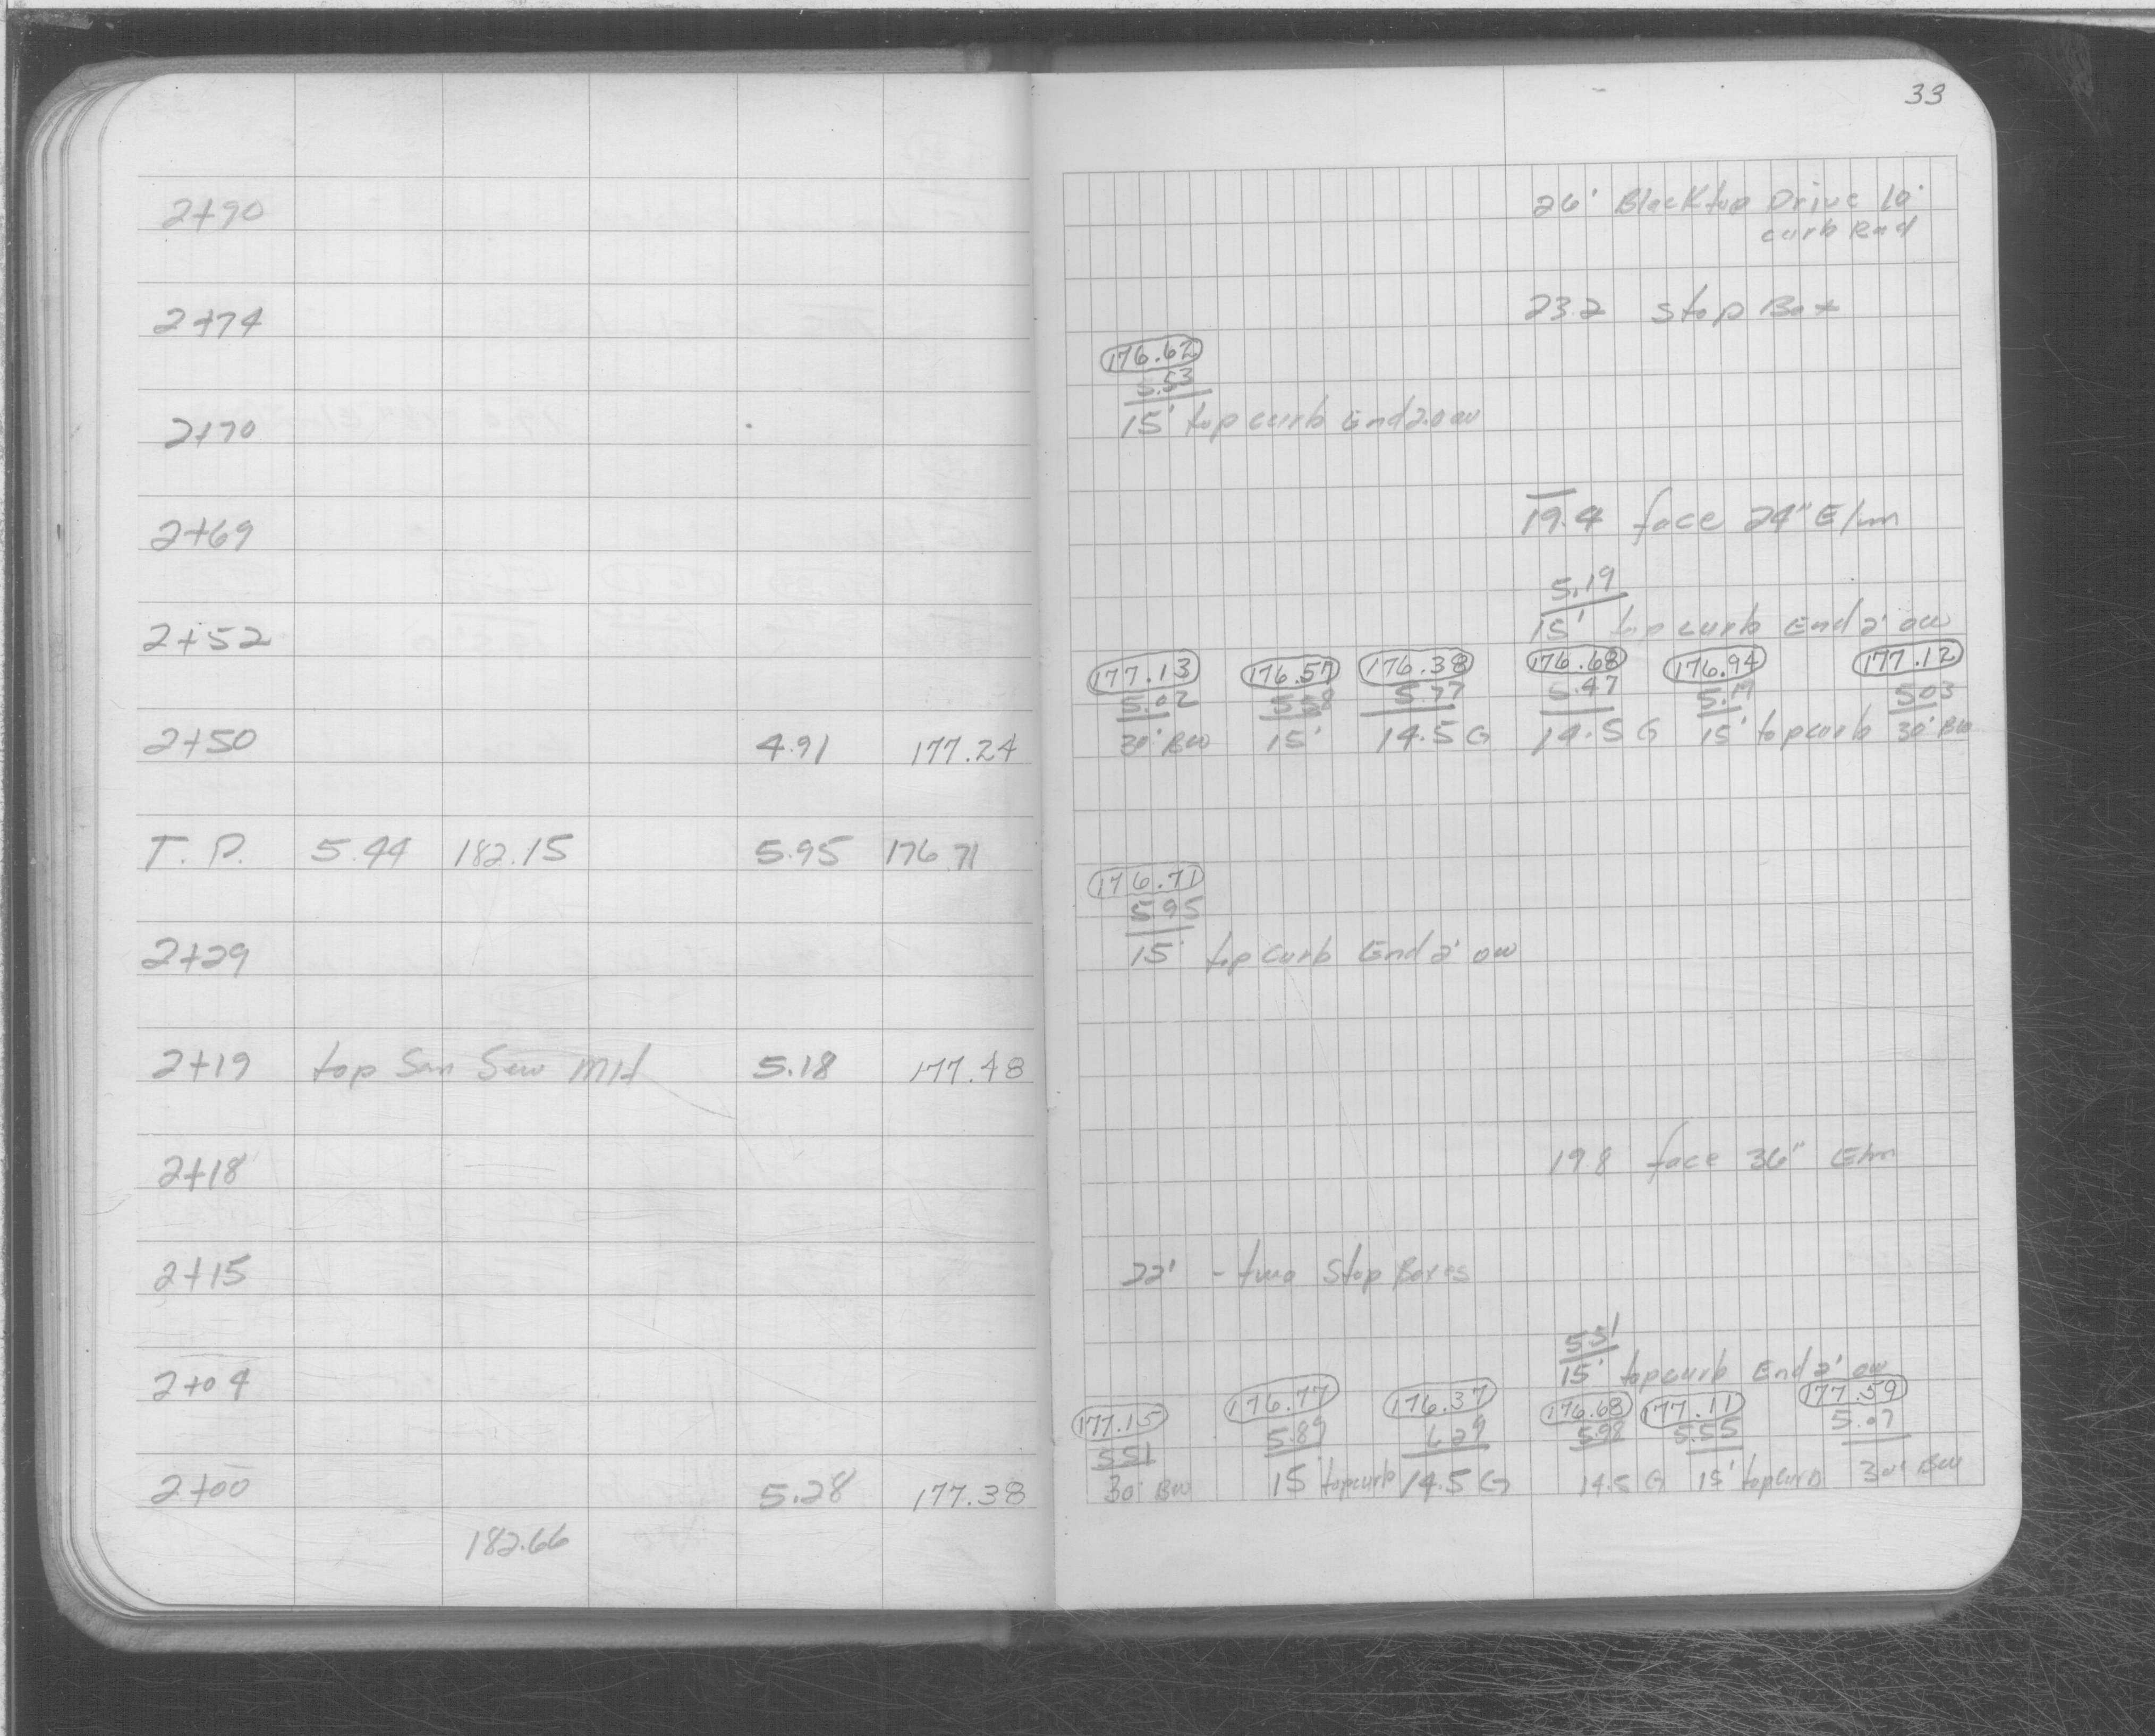 33
2+90
26' Blacktop Drive 10'
curb Rad
2+74
23.2 Stop Box
176.62
5.53
2+70
15' top curb End 2.0 ow
2+69
19.4 face 24" Elm
5.19
2+52
15' top curb End 2' ow
177.13 176.57 176.38 176.68 176.94 177.12
5.02 5.58 5.77 5.47 5.19 5.03
2+50 4.91 177.24
30' BW 15' 14.5 G 14.5 G 15' top curb 30' BW
T.P. 5.44 182.15 5.95 176.71
176.71
5.95
2+29
15' top curb End 2' ow
2+19 top San Sew MH 5.18 177.48
2+18
19.8 face 36" Elm
2+15
22' - two Stop Boxes
5.51
2+04
15' top curb End 2' ow
177.15 176.77 176.37 176.68 177.11 177.59
5.51 5.89 6.29 5.98 5.55 5.07
2+00 5.28 177.38
30' BW 15' top curb 14.5 G 14.5 G 15' top curb 30' BW
182.66